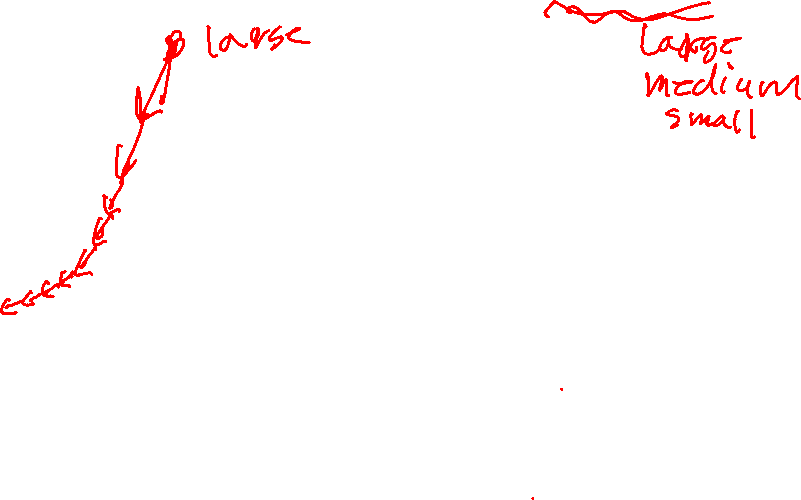 large
large
medium
small